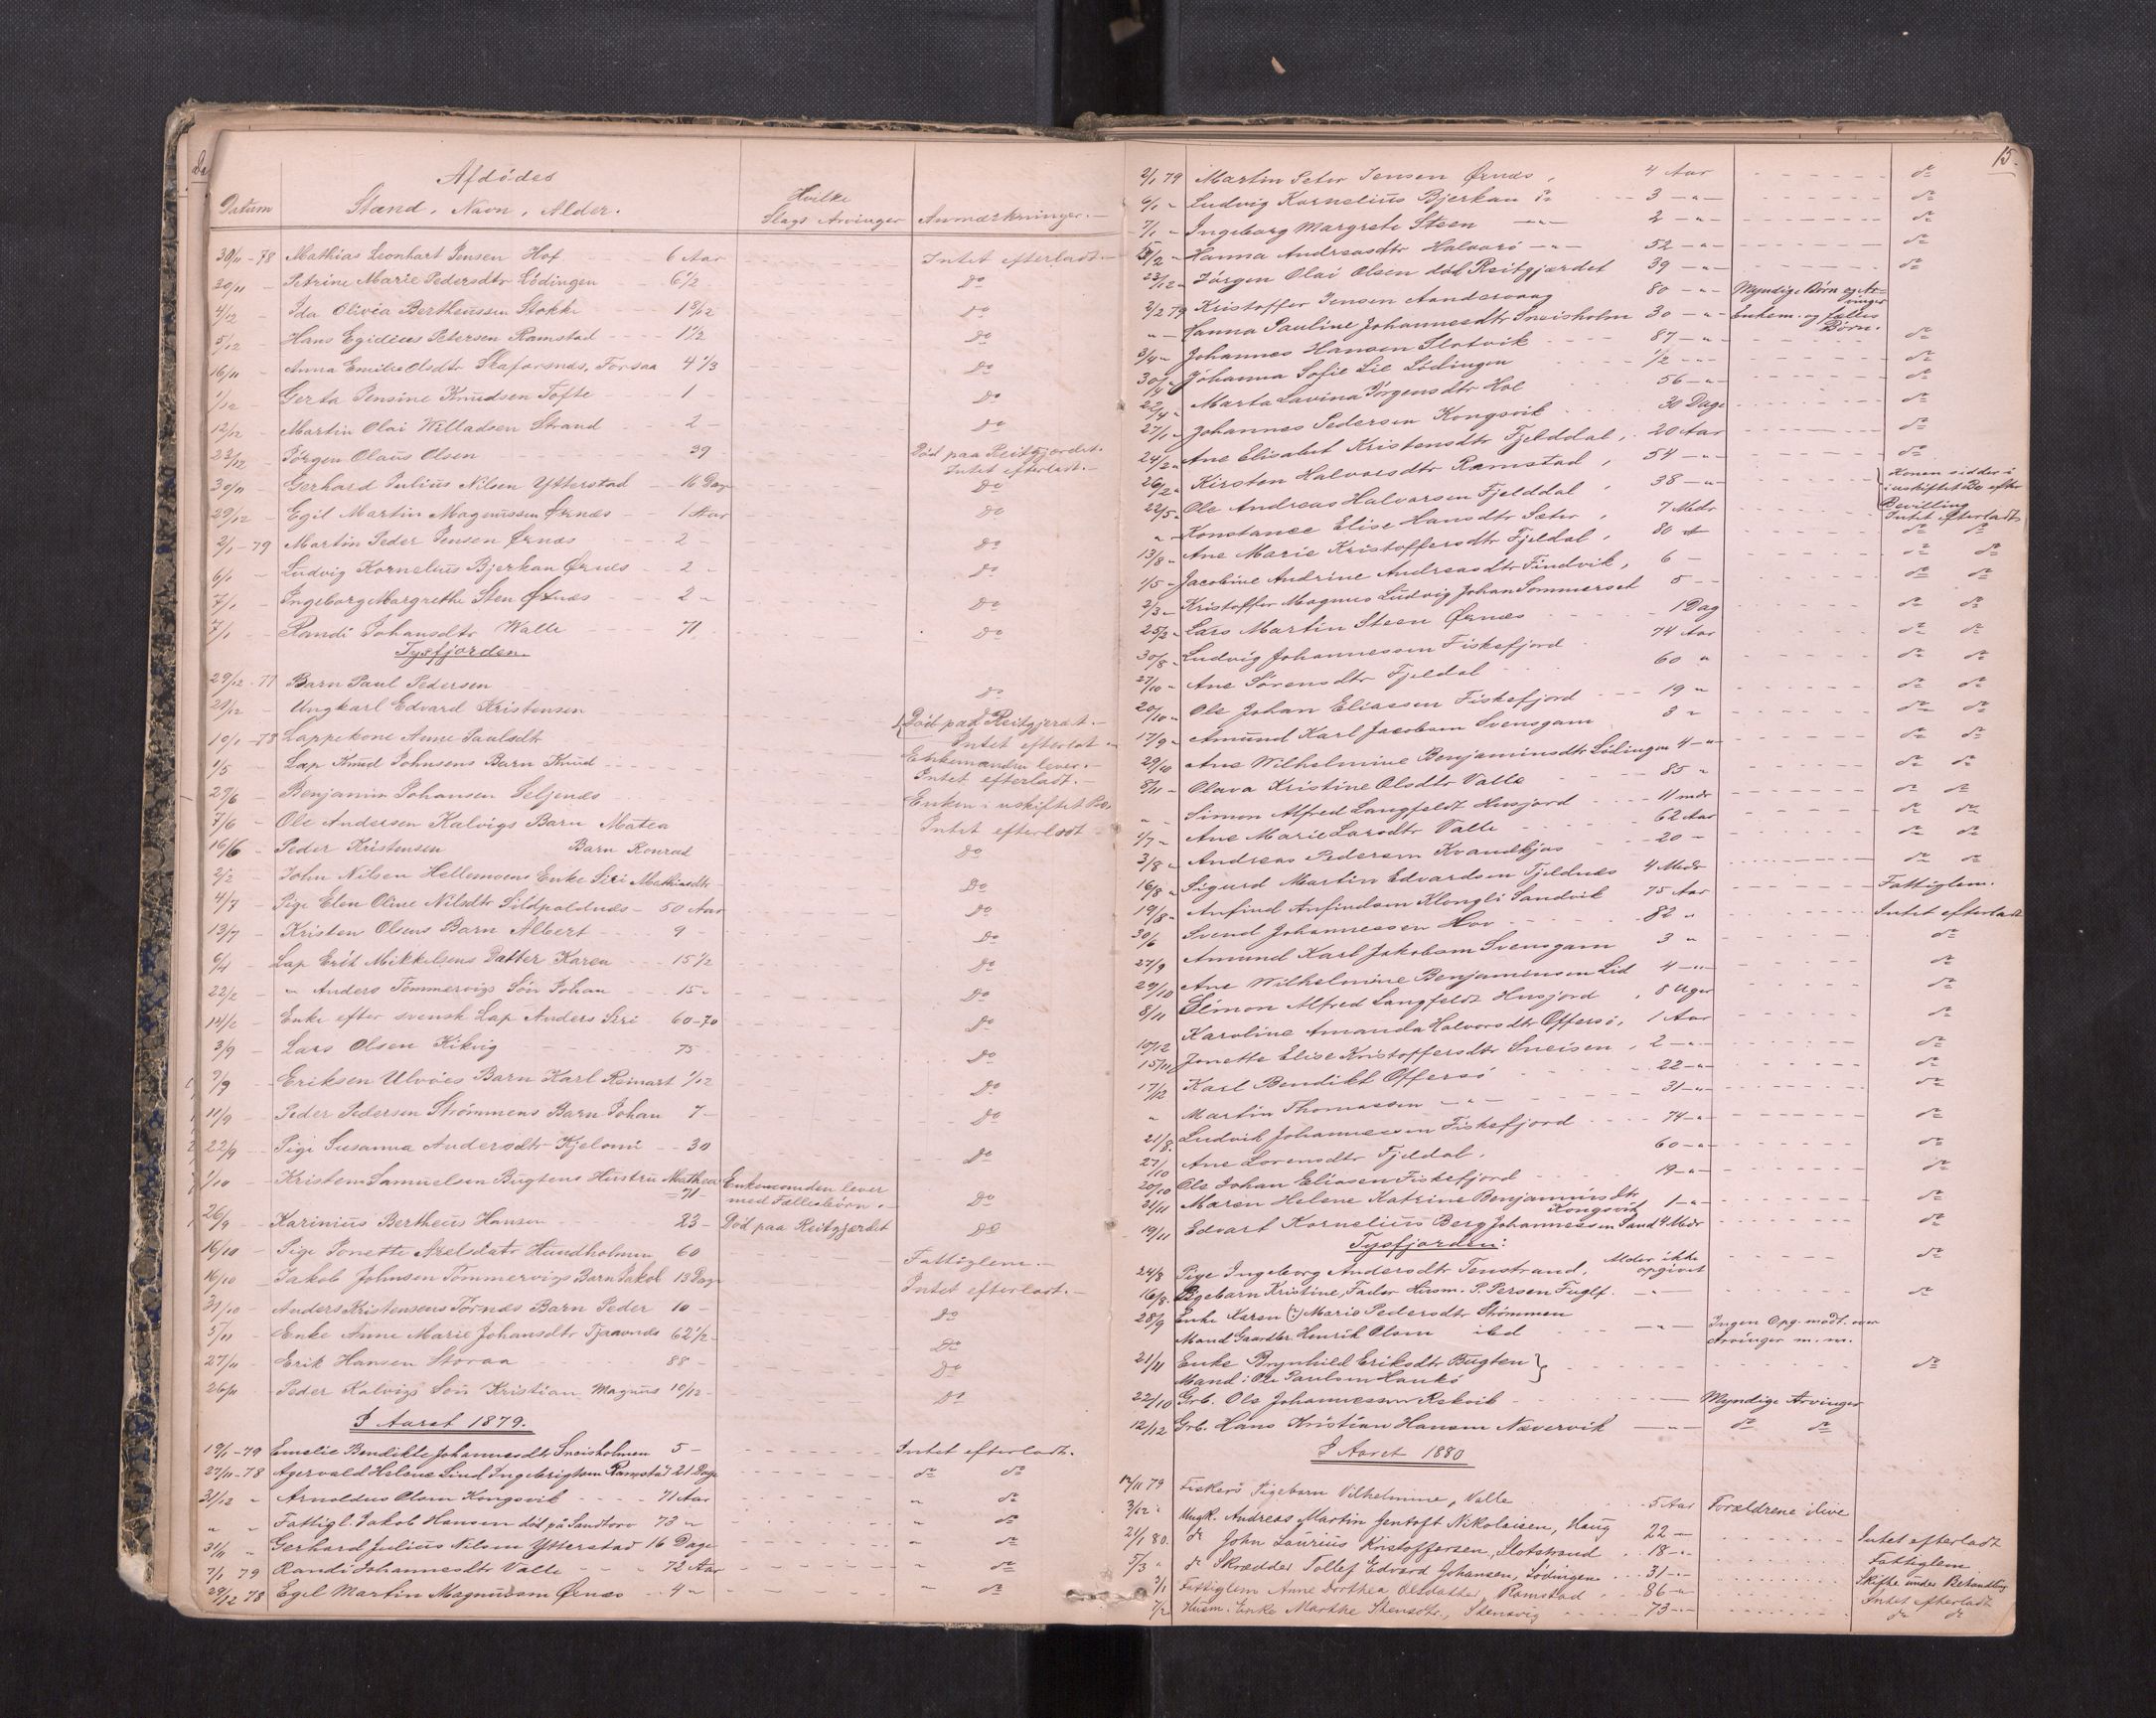 Da
Afdödes
Datum Stand, Navn, Alder. Hvilke Slags Arvinger Anmærkninger.-
30/11-78 Mathias Leonhart Jensen Hof 6 Aar Intet efterladt.-
30/11 - Petrine Marie Pedersdtr Lödingen 6 1/2 Do
4/12 - Ida Olivia Bertheussen Stokke 1 8/12 Do
5/12 - Hans Egidius Petersen Ramstad 1 1/2 Do
16/11 - Anna Emilie Olsdtr Skaforsnæs, Forsaa 4 1/3 Do
1/12 - Gerta Jensine Knudsen Tofte 1 - Do
12/12 - Martin Olai Willadsen Strand 2 - Do
23/12 - Jörgen Olaus Olsen 39 - Död paa Reitgjerdet.
Intet efterladt.-
30/11 - Gerhard Julius Nilsen Ytterstad 16 Dage Do
29/12 - Egil Martin Magnussen Ørnæs 1 Aar Do
2/1-79 Martin Peder Jensen Ørnæs 2 - Do
6/1 - Ludvig Kornelius Bjerkan Ørnæs 2 - Do
7/1 - Ingeborg Margrethe Sten Ørnæs 2 " Do
7/1 - Randi Johansdtr Walle 71 Do
Tysfjorden.
29/12-77 Barn Paul Pedersen Do
29/12 - Ungkarl Edvard Kristensen Död paa Reitgjerdet.-
10/1-78 Lappekone Anne Paulsdtr Intet efterlat
1/5 - Lap Knud Johnsens Barn Knud Enkemanden lever.-
Intet efterladt.-
27/6 - Benjamin Johansen Seljenæs Enken i uskiftet Bo
7/6 - Ole Andersen Kalvigs Barn Matea Intet efterladt
16/6 - Peder Kristensen Barn Konrad Do
2/2 - John Nilsen Hellemoens Enke Siri Mathiasdtr Do
4/7 - Pige Elen Oline Nilsdtr Sildpoldnæs - 50 Aar Do
13/7 - Kristen Olsens Barn Albert 9 - Do
6/4 - Lap Erik Mikkelsens Datter Karen 15 1/2 Do
22/2 - " Anders Tömmervigs Sön Johan 15 - Do
14/2 - Enke efter svensk Lap Anders Siri 60-70 Do
3/9 - Lars Olsen Kikvig 75 - Do
7/9 - Eriksen Ulvöies Barn Karl Reinart 1/12 Do
11/9 - Peder Pedersen Strömmens Barn Johan 7 - Do
22/9 - Pige Susanna Andersdtr Kjelomi 30 Do
1/10 - Kristen Samuelsen Bugtens Hustru Mathea 71 - Enkemanden lever
med Fællesbörn.- Do
26/9 - Karinius Bertheus Hansen 23 - Död paa Reitgjerdet Do
16/10 - Pige Jonette Axelsdatr Hundholmen 60 Fattiglem.-
16/10 - Jakob Johnsen Tömmervigs Barn Jakob 13 Dage Intet efterladt.-
31/10 - Anders Kristensens Tørnæs Barn Peder 10 - Do
5/11 - Enke Anne Marie Johansdtr Tjaavnæs 62 1/2 - Do
27/11 - Erik Hansen Storaa 88 - Do
26/11 - Peder Kalvigs Sön Kristian Magnus 10/12 - Do
I Aaret 1879.
19/1-79 Emelie Bendikte Johannesdtr Sneisholmen 5 - Intet efterladt.
27/11-78 Agervald Helene Lind Ingebrigtsen Ramstad 21 Dage do do
31/12 " Arnoldus Olsen Kongsvik 71 Aar " do
" " Fattigl. Jakob Hansen död på Sandtorv 73 " " do
31/11 " Gerhard Julius Nilsen Ytterstad 16 Dage " do
7/1 79 Randi Johannesdtr Valle 72 Aar " do
29/12 78 Egil Martin Magnussen Ørnæs 4 " " do
15.
2/1 79 Martin Peter Jensen Ørnæs, 4 Aar do
6/1 - Ludvig Kornelius Bjerkan do 3 - " - do
7/1 - Ingeborg Margrete Steen - " - 2 - " - do
15/2 - Hanna Andreasdtr Halvarö - " - 52 - " - do
23/12 - Jörgen Olai Olsen död Reitgjærdet 39 - " - do
2/2 79 Kristoffer Jensen Aandervaag 80 - " - Myndige Børn og Ar-
vinger
" - Hanna Pauline Johannesdtr Sneisholm 30 - " - Enkem. og fælles
Børn.
3/4 " Johannes Hansen Slotvik 87 - " - do
30/4 " Johanna Sofie Lie Lödingen 1/2 - " - do
22/4 " Marta Lavina Jörgensdtr Hol 56 - " - do
27/1 - Johannes Pedersen Kongsvik 30 Dage do
24/2 " Ane Elisabet Kristensdtr Fjelddal, 20 Aar do
26/2 " Kirsten Halvorsdtr Ramstad, 54 - " - do
22/5 " Ole Andreas Halvorsen Fjelddal 38 - " - Konen sidder i
uskiftet Bo efter
Bevilling
" - Konstance Elise Hansdtr Sæter, 7 Mdr Intet efterladt
13/8 " Ane Marie Kristoffersdtr Fjeldal, 80 do do
1/5 - Jacobine Andrine Andreasdtr Findvik, 6 - do do
2/3 - Kristoffer Magnus Ludvig Johan Sommerset 5 - - do do
25/2 - Lars Martin Steen Ørnæs 1 Dag do do
30/8 - Ludvig Johannessen Fiskefjord 74 Aar do do
27/10 - Ane Sörensdtr Fjeldal 60 " do do
20/10 " Ole Johan Eliassen Fiskefjord 19 " do do
17/9 " Amund Karl Jacobsen Svensgam 3 " do do
29/10 Ane Wilhelmine Benjaminsdtr Lödingen 4 - " do do
8/11 - Olava Kristine Olsdtr Valle 85 " do do
" - Simon Alfred Langfeldt Husjord 11 mdr do do
1/7 - Ane Marie Larsdtr Valle 62 Aar do do
3/8 " Andreas Pedersen Kvandkjos 20 - do do
16/8 " Sigurd Martin Edvardsen Fjeldnæs 4 Mdr do do
19/8 - Anfind Anfindsen Klongli Sandvik 75 Aar Fattiglem.
30/6 Svend Johannessen Hov 82 " Intet efterladt
27/9 Amund Karl Jakobsen Svensgam 3 " do
29/10 Ane Wilhelmine Benjaminsen Lid 4 - " - do
8/11 Simon Alfred Langfeldt Husjord, 8 Uger do
10/12 Karoline Amanda Halvorsdtr Offersö, 1 Aar do
15/11 Jonette Elise Kristoffersdtr Sneisen, 2 - " - do
17/12 Karl Bendikt Offersö 22 - " - do
" Martin Thomassen - " - 31 - " - do
21/8. Ludvik Johannessen Fiskefjord 74 - " do
27/10 Ane Sorensdtr Fjeldal, 60 - " - do
20/10 Ole Johan Eliasen Fiskefjord 19 - " - do
21/11 Maren Helene Katrine Benjaminsdtr
Kongsvik 1 - " - do
19/11 Edvart Kornelius Berg Johannessen Sand 4 Mdr do
Tysfjorden:
24/8 Pige Ingeborg Andersdtr Tenstrand, Alder ikke
opgivet do
16/8. Pigebarn Kristine, Fader Husm. P. Persen Fuglf. - " - do
28/9 Enke Karen (?) Marie Pedersdtr Strömmen
Mand Gaardbr. Henrik Olsen ibd - " - Ingen Opg. modt. over
Arvinger m. m.
21/11 Enke Brynhild Eriksdtr Bugten
Mand: Ole Paulsen Haukö do
22/10 Grb. Ole Johannessen Rekvik Myndige Arvinger
12/12 Grb. Hans Kristian Hansen Nævervik - " - do do
I Aaret 1880
17/11 79 Fiskerö Pigebarn Vilhelmine, Valle 5 Aar Forældrene ilive
3/12 " Ungk. Andreas Martin Jentoft Nikolaisen, Haug 22 -
21/1 80. do John Laurius Kristoffersen, Slotstrand 18 - " Intet efterladt
5/3 " do Skrædder Tollef Edvard Johansen, Lödingen 31 - " - Fattiglem
3/1 Fattiglem Anne Dorthea Olsdatter, Ramstad 86 - " Skifte under Behandling
7/2 Husm. Enke Marthe Stensdtr., Stensvig 73 - " - Intet efterladt
do do